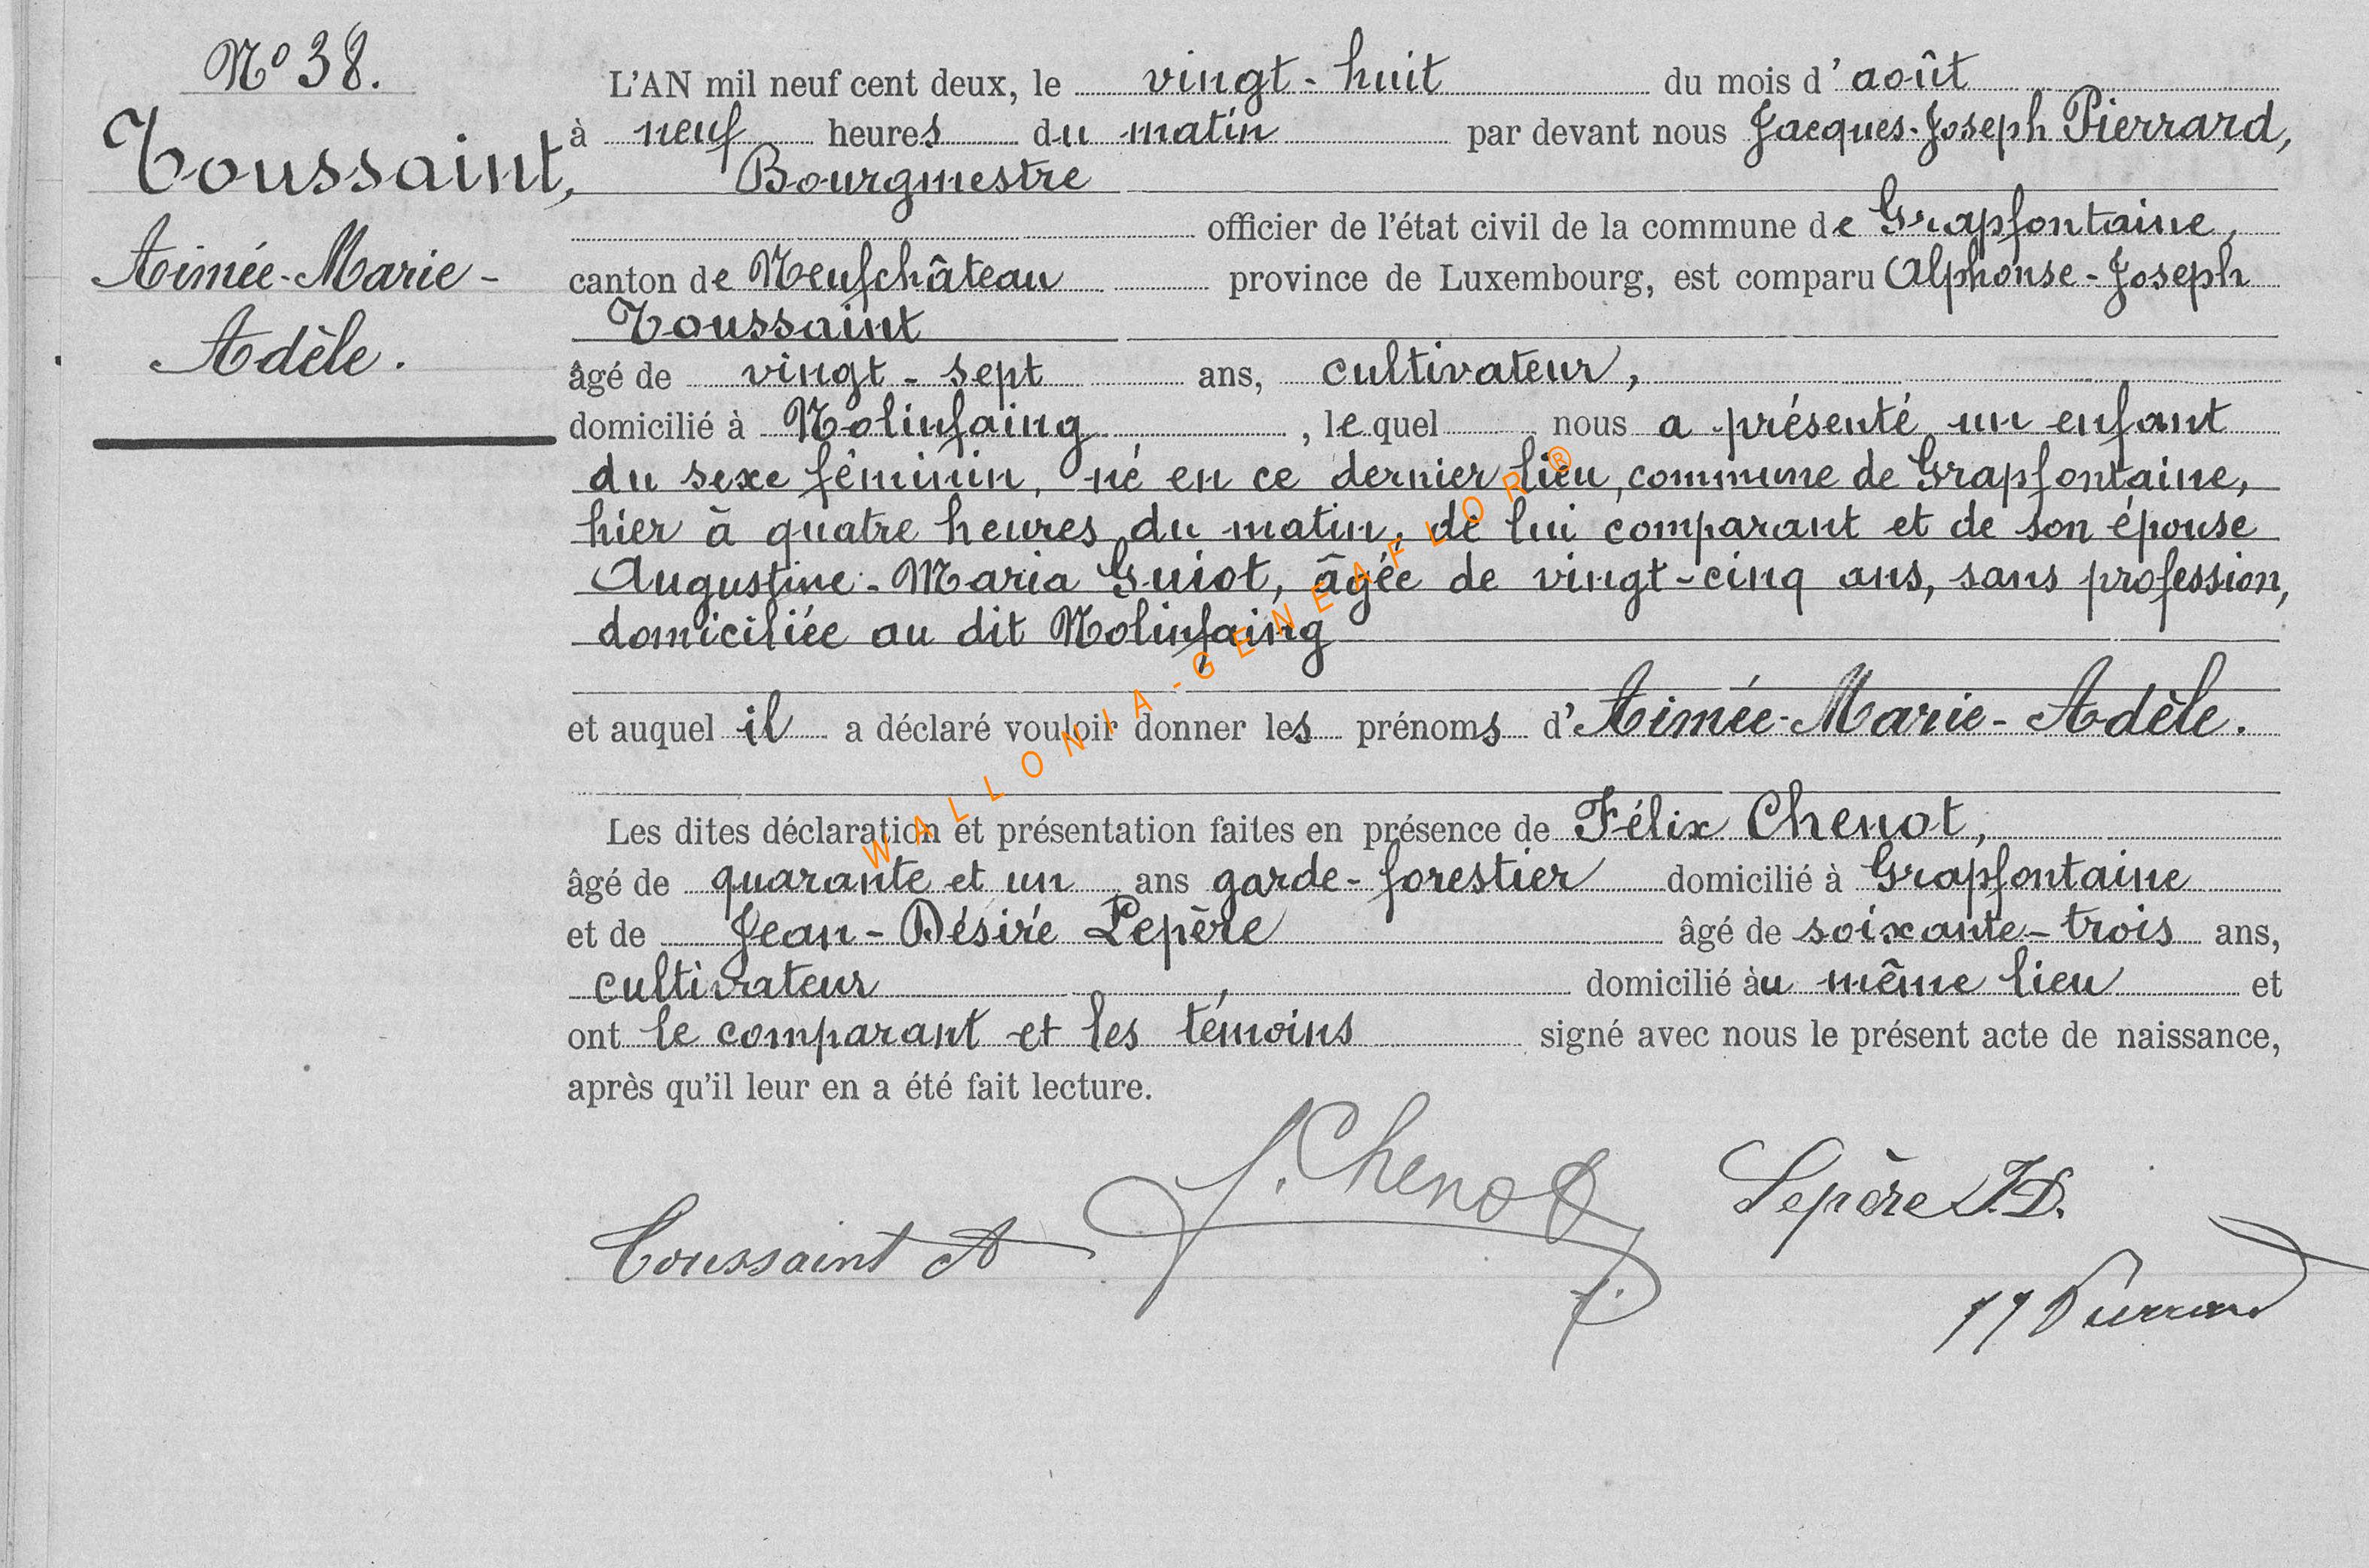 N° 38.
Toussaint,
Aimée-Marie-
Adèle.
L'AN mil neuf cent deux, le vingt-huit du mois d'août
à neuf heures du matin par devant nous Jacques-Joseph Pierrard,
Bourgmestre
officier de l'état civil de la commune de Grapfontaine,
canton de Neufchâteau province de Luxembourg, est comparu Alphonse-Joseph
Toussaint
âgé de vingt-sept ans, cultivateur,
domicilié à Nolinfaing, lequel nous a présenté un enfant
du sexe féminin, né en ce dernier lieu, commune de Grapfontaine,
hier à quatre heures du matin, de lui comparant et de son épouse
Augustine-Maria Guiot, âgée de vingt-cinq ans, sans profession,
domiciliée au dit Nolinfaing
et auquel il a déclaré vouloir donner les prénoms d'Aimée-Marie-Adèle.
Les dites déclaration et présentation faites en présence de Félix Chenot,
âgé de quarante et un ans garde-forestier domicilié à Grapfontaine
et de Jean-Désiré Lepère âgé de soixante-trois ans,
cultivateur, domicilié àu même lieu et
ont le comparant et les témoins signé avec nous le présent acte de naissance,
après qu'il leur en a été fait lecture.
Toussaint A
f. Chenot
Lepère J.D.
JJ Pierrard
WALLONIA-GENEAFLOR®